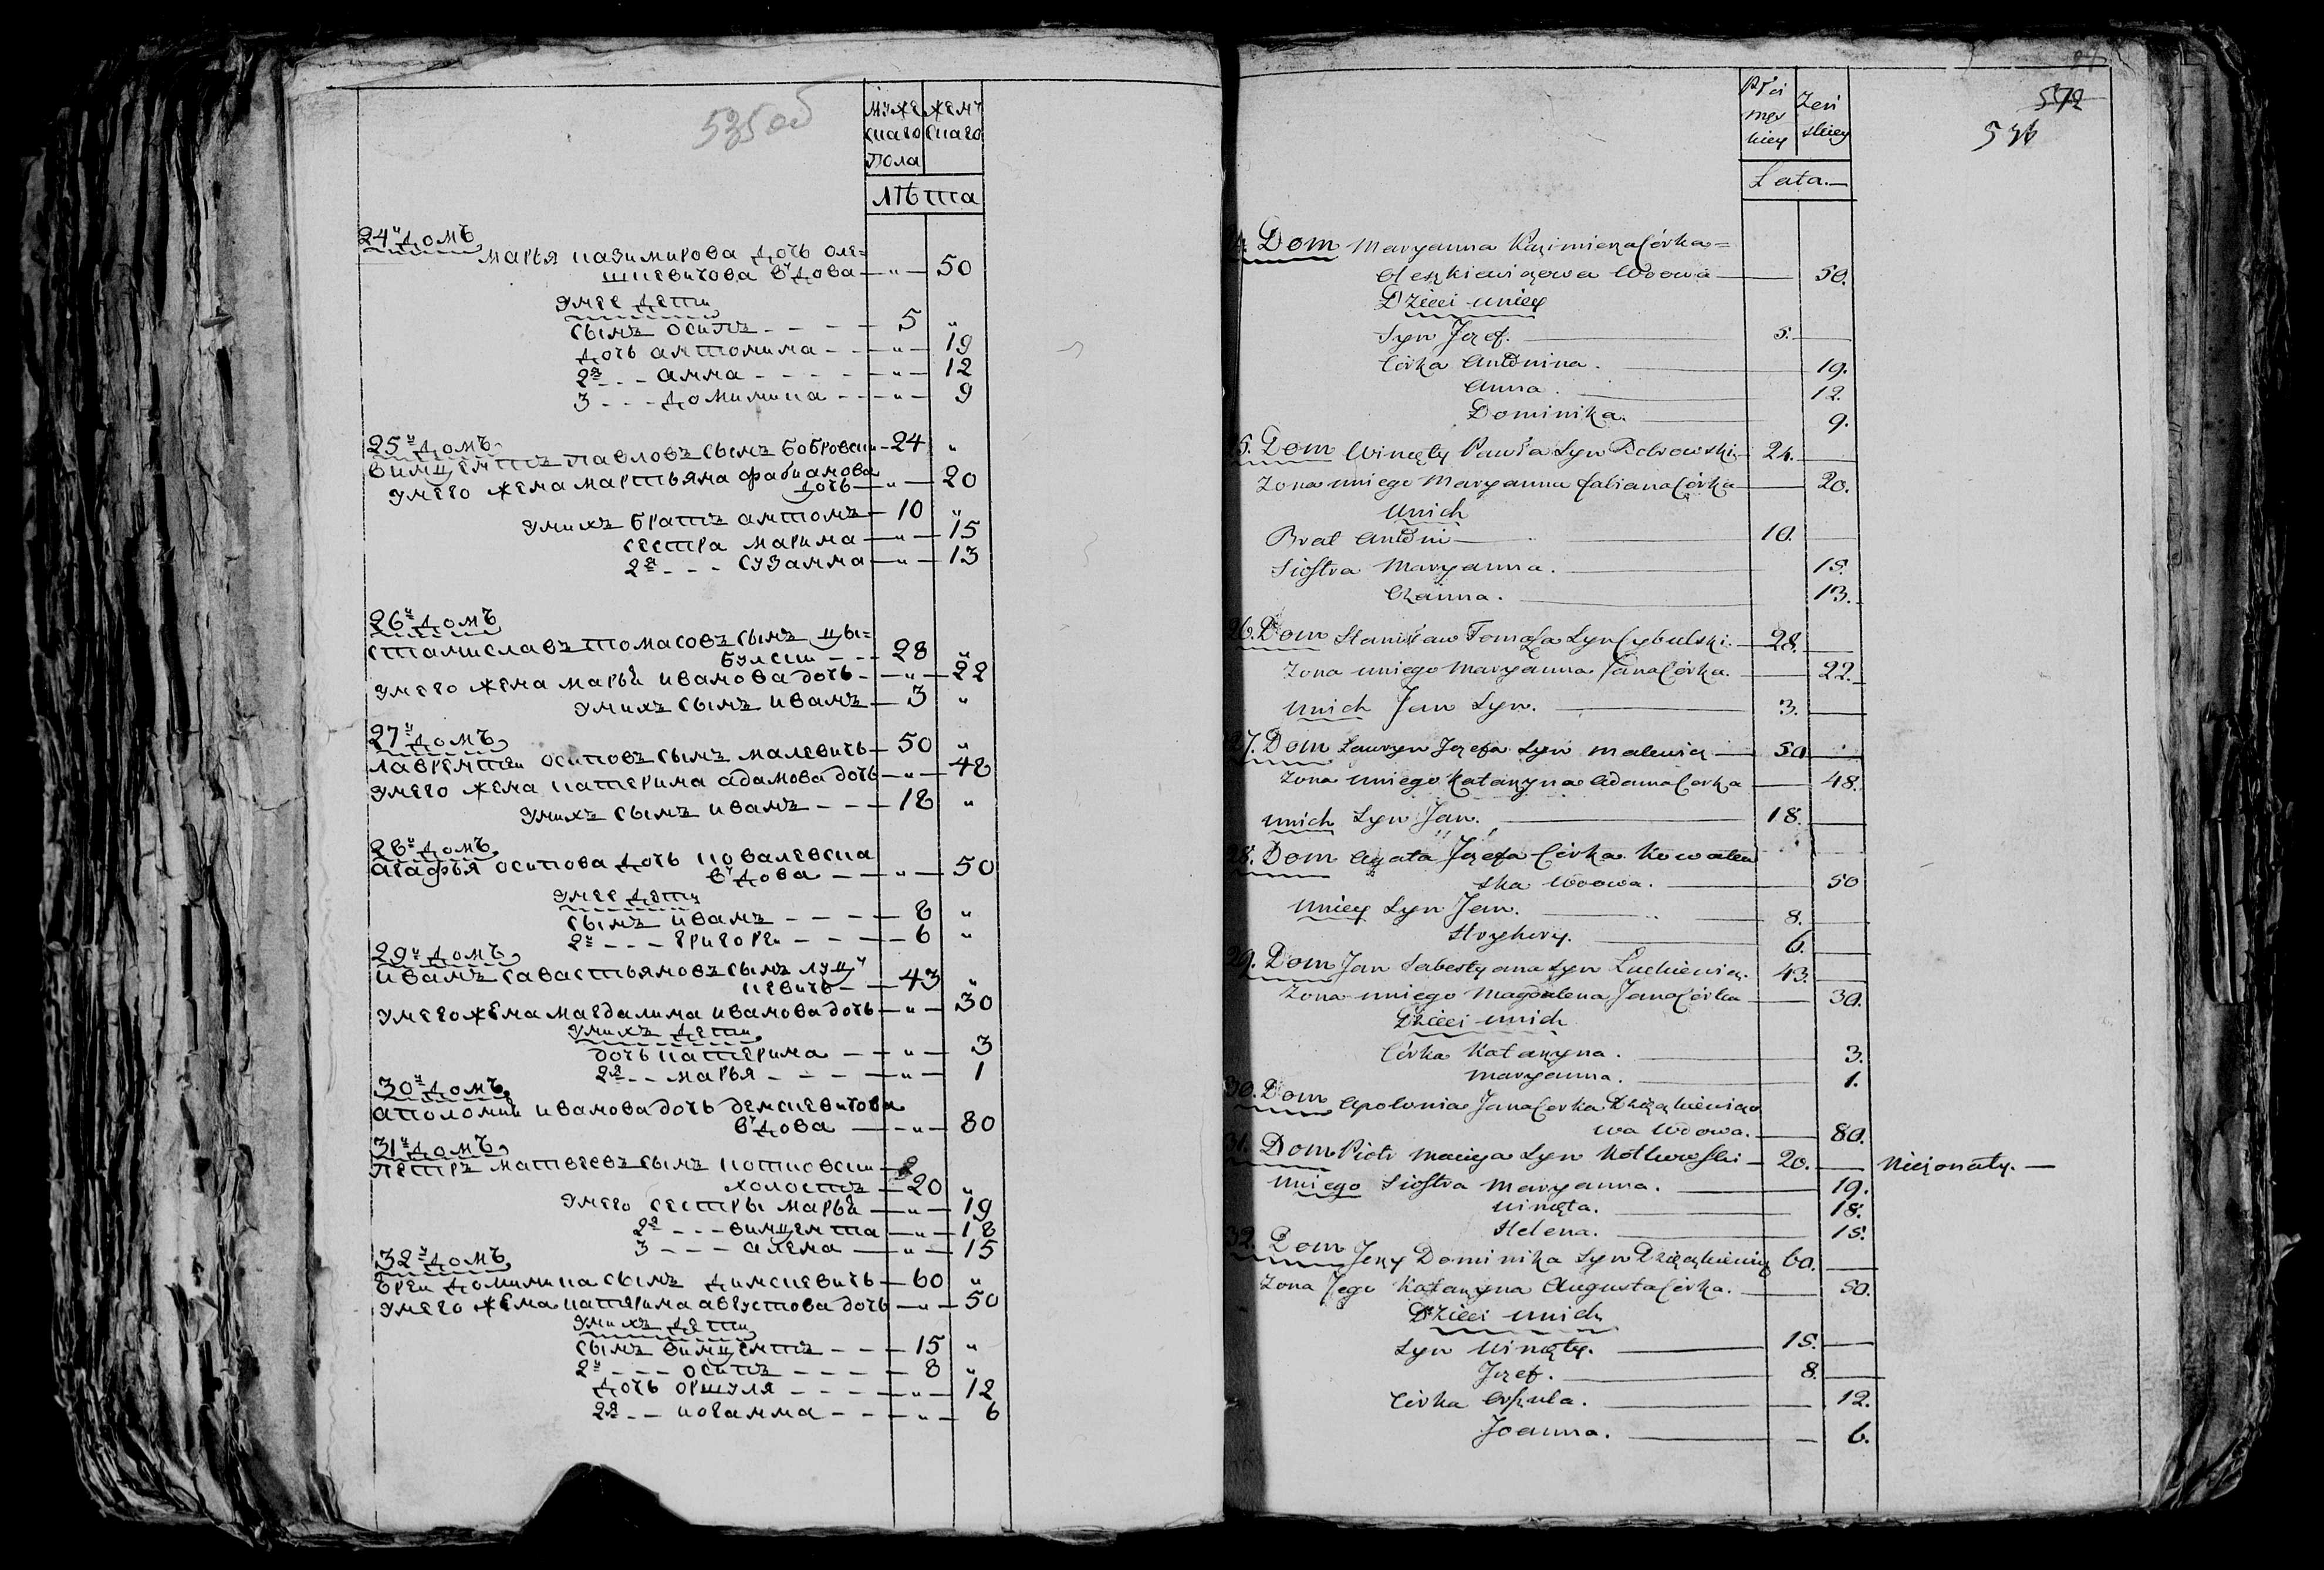 535 об
Муже
скаго
Пола
Женъ
скаго
Лѣта
24й Домъ
Марья Казимирова дочь Оле=
шкевичова вдова — " — 50
Унее дети
сынъ Осипъ — 5 "
дочь Антонина — " — 19
2я - - Анна — " — 12
3 - - Доминика — " — 9
25й Домъ
Винцентъ Павловъ сынъ Бобровски — 24 "
Унего жена Мартьяна Фабианова
дочь — " — 20
Унихъ братъ Антонъ — 10 "
сестра Марина — " — 15
2я - - Сузанна — " — 13
26й Домъ
Станиславъ Томасовъ сынъ Цы=
булски — 28 "
Унего жена Марьи Иванова дочь — " — 22
Унихъ сынъ Иванъ — 3 "
27й Домъ
Лаврентеи Осиповъ сынъ Малевичь — 50 "
Унего жена Катерина Адамова дочь — " — 48
Унихъ сынъ Иванъ — 18 "
28й Домъ
Агафья Осипова дочь Ковалевска
вдова — " — 50
Унее дети
сынъ Иванъ — 8 "
2й - - Григореи — 6 "
29й Домъ
Иванъ Савастьяновъ сынъ Луц
кевичь — 43 "
Унего жена Магдалина Иванова дочь — " — 30
Унихъ дети
дочь Катерина — " — 3
2я - - Марья — " — 1
30й Домъ
Аполонии Иванова дочь Денскевичова
вдова — " — 80
31й Домъ
Петръ Матвеевъ сынъ Котковски
холостъ — 20 "
Унего сестры Марьи — " — 19
2я - - Винцента — " — 18
3 - - Алена — " — 15
32й Домъ
Ереи Доминика сынъ Динскевичь — 60 "
Унего жена Катерина Августова дочь — " — 50
Унихъ дети
сынъ Винцентъ — 15 "
2й - - Осипъ — 8 "
дочь Оршуля — " — 12
2я - - Иоганна — " — 6
572
Płci
męs
kiey
Żeń
skiey
Lata.—
Dom Maryanna Kazimierza Córka=
Oleszkiewiczowa Wdowa — 50.
Dzieci uniey
Syn Jozef. — 5.
Córka Antonina. — 19.
Anna. — 12.
Dominika. — 9.
5. Dom Wincęty Pawła Syn Bobrowski — 24.
Zona uniego Maryanna Fabiana Córka — 20.
unich
Brat Antoni — 10.
Siostra Maryanna. — 15.
Zuanna. — 13.
26. Dom Stanisław Tomasza Syn Cybulski. — 28.
Zona uniego Maryanna Jana Córka. — 22.
unich Jan Syn. — 3.
27. Dom Lawryn Jozefa Syn Malewicz — 50
Zona uniego Katarzyna Adama Corka — 48.
unich Syn Jan. — 18.
28. Dom Agata Jozefa Córka Kowalew
ska Wdowa. — 50
uniey Syn Jan. — 8.
Hryhory. — 6.
29. Dom Jan Sabestyana Syn Luckiewicz. — 43.
Zona uniego Magdalena Jana Córka — 30.
Dzieci unich
Córka Katarzyna. — 3.
Maryanna. — 1.
30. Dom Apolonia Jana Corka Dzięckiewiczo
wa Wdowa. — 80.
31. Dom Piotr Macieja Syn Kotkowski — 20. — Nieżonaty.—
uniego Siostra Maryanna. — 19.
Wincęta. — 18.
Helena. — 15.
32. Dom Jerzy Dominika Syn Dzięckiewicz 60.
Zona Jego Katarzyna Augusta Córka. — 50.
Dzieci unich
Syn Wincęty. — 15.
Jozef. — 8.
Córka Orszula. — 12.
Joanna. — 6.